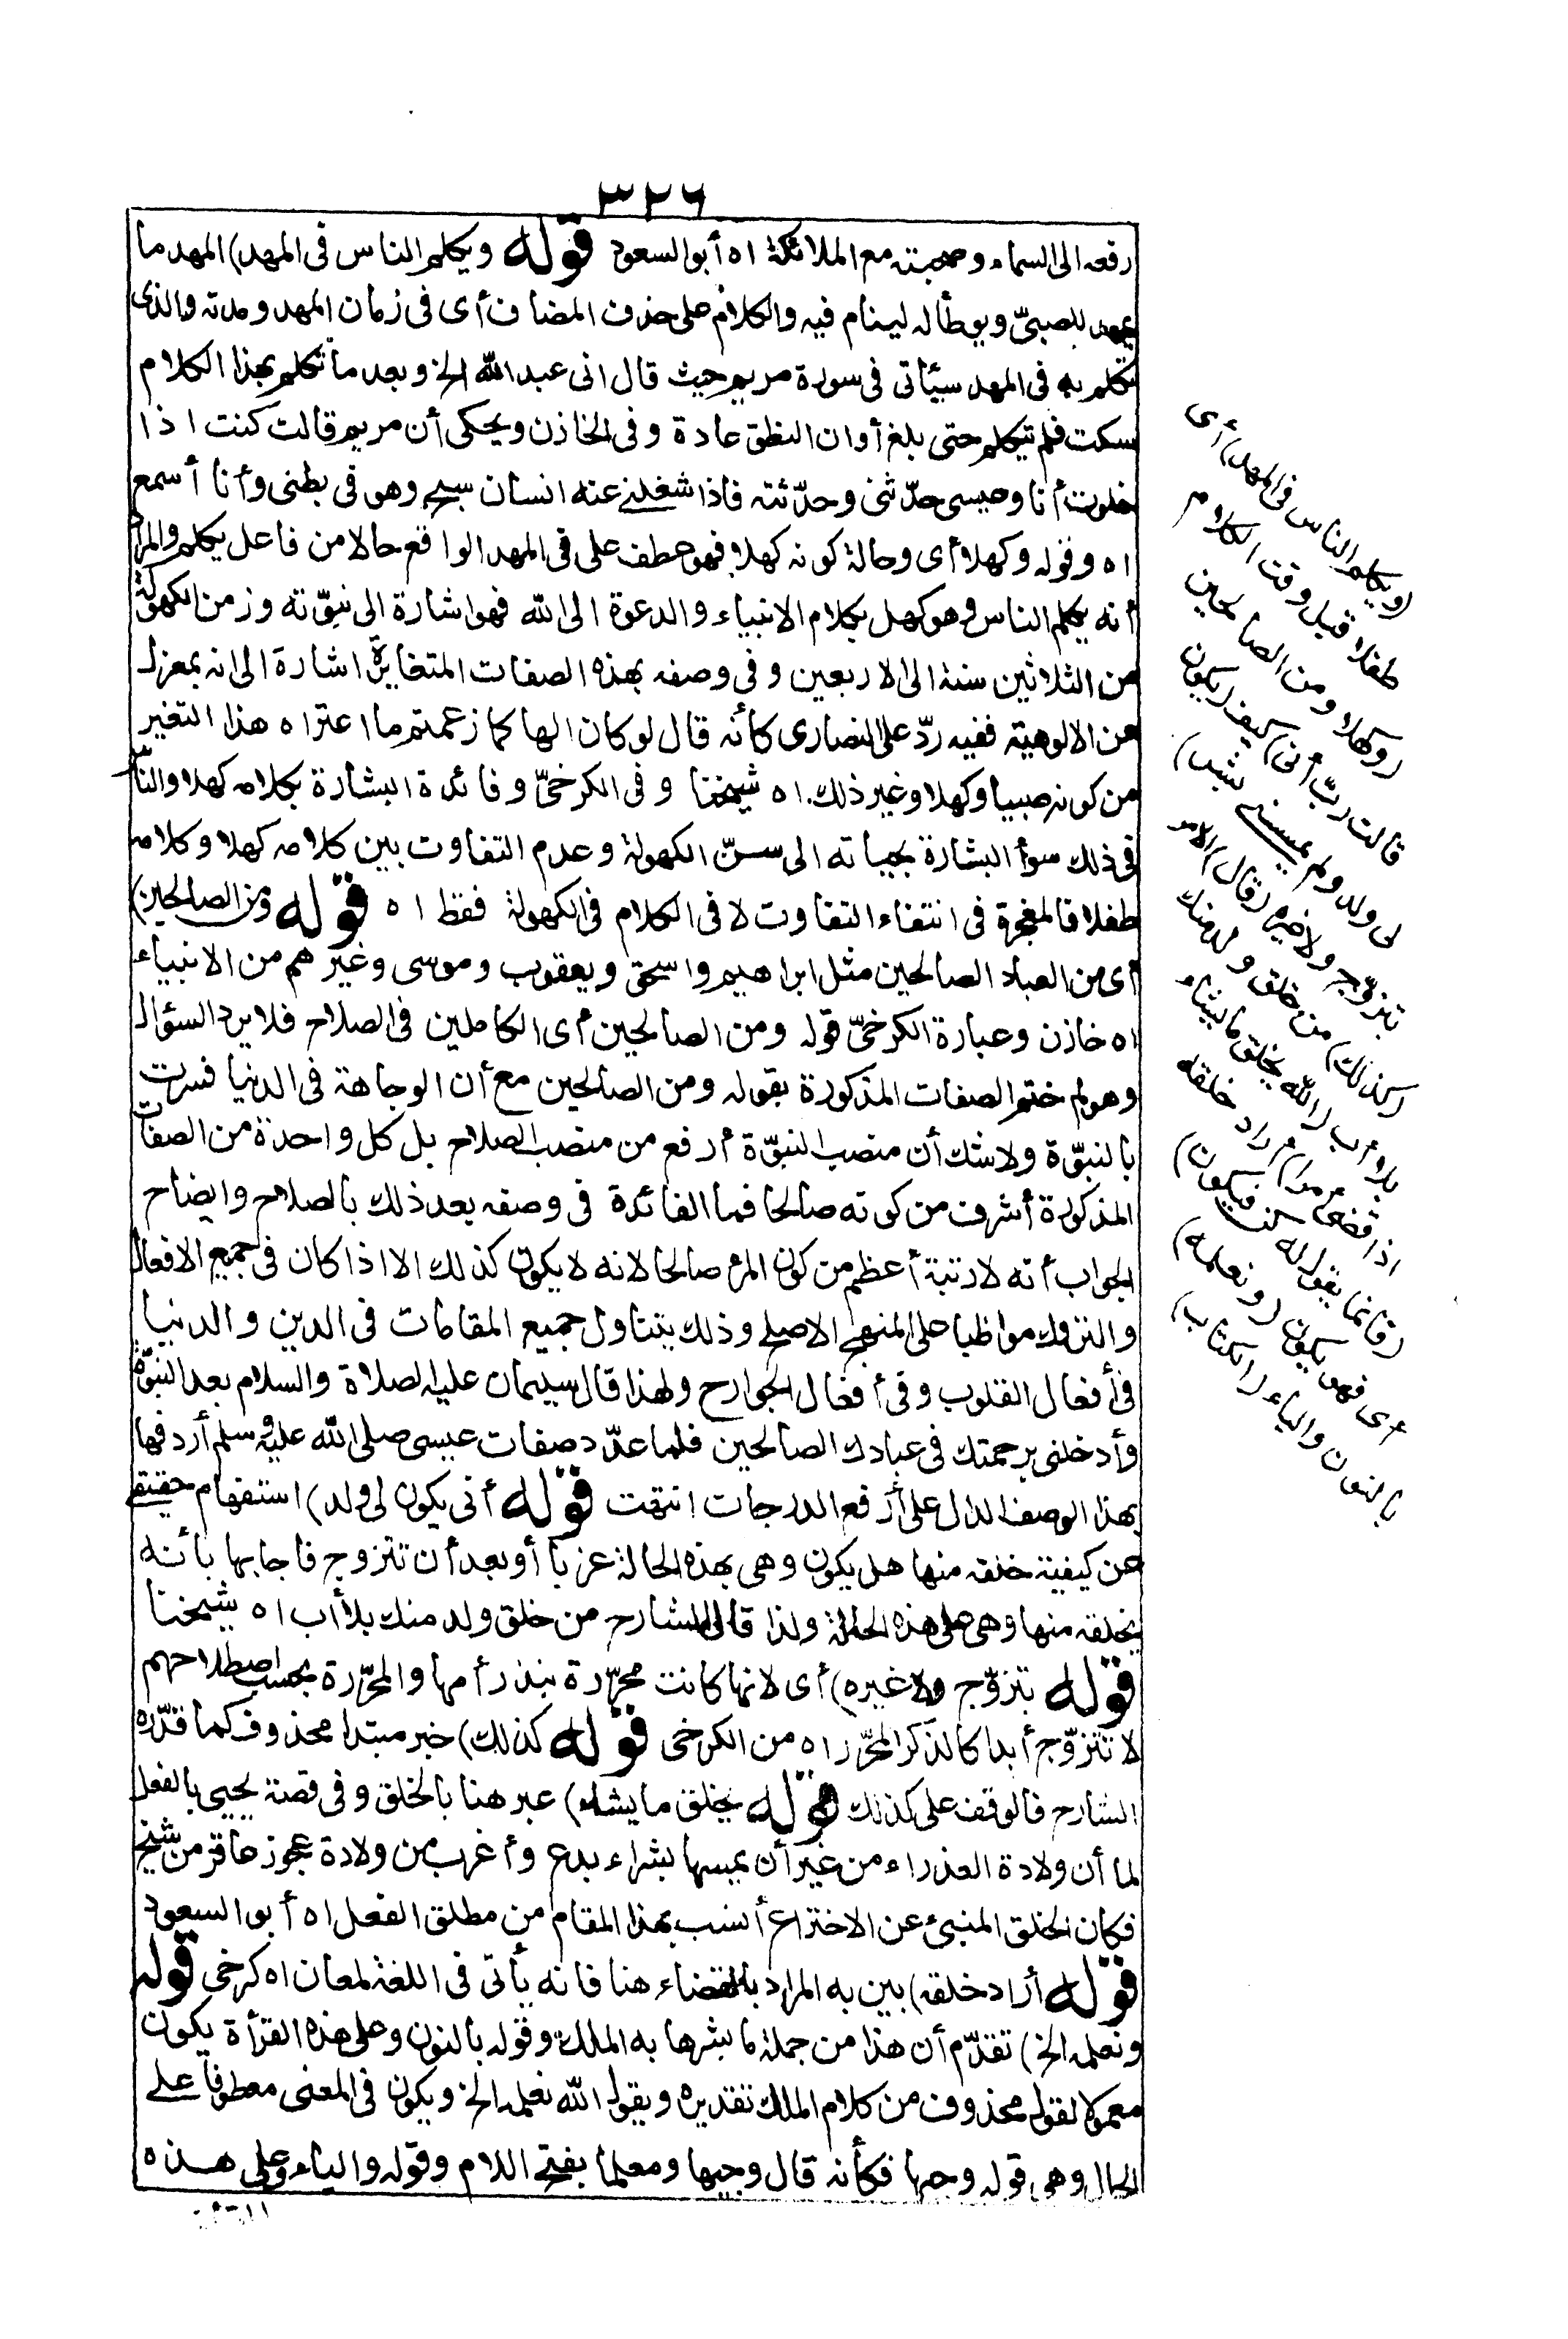 ٣٢٦
رفعه الى السماء وصحبته مع الملائكة اه أبو السعود قوله ويكلم الناس فى المهد) المهد ما
يمهد للصبىّ ويوطأ له لينام فيه والكلام على حذف المضاف أى فى زمان المهد ومدته والذى
تكلم به فى المهد سيأتى فى سورة مريم حيث قال انى عبد الله الخ وبعد ما تكلم بهذا الكلام
سكت فلم يتكلم حتى بلغ أوان النطق عادة وفى الخازن ويحكى أن مريم قالت كنت اذا
خلوت أنا وعيسى حدّثنى وحدّثته فاذا شغلنى عنه انسان سبح وهو فى بطنى وأنا أسمع
اه وقوله وكهلا أى وحالة كونه كهلا فهو عطف على فى المهد الواقع حالا من فاعل يكلم والمراد
أنه يكلم الناس وهو كهل بكلام الانبياء والدعوة الى الله فهو اشارة الى نبوّته وزمن الكهولة
من الثلاثين سنة الى الاربعين وفى وصفه بهذه الصفات المتغايرة اشارة الى انه بمعزل
عن الالوهية ففيه ردّ على النصارى كأنه قال لو كان الها كما زعمتم ما اعتراه هذا التغير
من كونه صبيا وكهلا وغير ذلك. اه شيخنا وفى الكرخىّ وفائدة البشارة بكلامه كهلا والناس
فى ذلك سوأ البشارة بحياته الى سنّ الكهولة وعدم التفاوت بين كلامه كهلا وكلامه
طفلا فالمعجزة فى انتفاء التفاوت لا فى الكلام فى الكهولة فقط اه قوله ومن الصالحين)
أى من العباد الصالحين مثل ابراهيم واسحق ويعقوب وموسى وغيرهم من الانبياء
اه خازن وعبارة الكرخىّ قوله ومن الصالحين أى الكاملين فى الصلاح فلا يرد السؤال
وهو لم ختم الصفات المذكورة بقوله ومن الصالحين مع أن الوجاهة فى الدنيا فسرت
بالنبوّة ولا شك أن منصب النبوّة أرفع من منصب الصلاح بل كل واحدة من الصفات
المذكورة أشرف من كونه صالحا فما الفائدة فى وصفه بعد ذلك بالصلاح وايضاح
الجواب أنه لا رتبة أعظم من كون المرء صالحا لانه لا يكون كذلك الا اذا كان فى جميع الافعال
والتروك مواظبا على المنهج الاصلح وذلك يتناول جميع المقامات فى الدين والدنيا
فى أفعال القلوب وفى أفعال الجوارح ولهذا قال سليمان عليه الصلاة والسلام بعد النبوّة
وأدخلنى برحمتك فى عبادك الصالحين فلما عدّد صفات عيسى صلى الله عليه وسلم أردفها
بهذا الوصف الدال على أرفع الدرجات انتهت قوله أنى يكون لى ولد) استفهام حقيقى
عن كيفية خلقه منها هل يكون وهى بهذه الحالة عزبا أو بعد أن تتزوج فاجابها بأنه
يخلقه منها وهى على هذه الحالة ولذا قال الشارح من خلق ولد منك بلا أب اه شيخنا
قوله بتزوّج ولا غيره) أى لانها كانت محرّرة بنذر أمها والمحرّرة بحسب اصطلاحهم
لا تتزوّج أبدا كالذكر المحرّر اه من الكرخى قوله كذلك) خبر مبتدا محذوف كما قدّره
الشارح فالوقف على كذلك قوله يخلق ما يشاء) عبر هنا بالخلق وفى قصة يحيى بالفعل
لما أن ولادة العذراء من غير أن يمسها بشراء بدع وأغرب من ولادة عجوز عاقر من شيخ
فكان الخلق المنبئ عن الاختراع أنسب بهذا المقام من مطلق الفعل اه أبو السعود
قوله أراد خلقه) بين به المراد بالقضاء هنا فانه يأتى فى اللغة لمعان اه كرخى قوله
ونعلمه الخ) تقدّم أن هذا من جملة ما بشرها به الملك وقوله بالنون وعلى هذه القرأة يكون
معمولا لقول محذوف من كلام الملك تقديره ويقول الله نعلمه الخ ويكون فى المعنى معطوفا على
الحال وهى قوله وجيها فكأنه قال وجيها ومعلما بفتح اللام وقوله والياء وعلى هذه
(ويكلم الناس فى المهد) أى
طفلا قبل وقت الكلام
(وكهلا ومن الصالحين
قالت ربّ أنى) كيف (يكون
لى ولد ولم يمسسنى بشر)
بتزوّج ولا غيره (قال) الامر
(كذلك) من خلق ولد منك
بلا أب (الله يخلق ما يشاء
اذا قضى أمرا) أراد خلقه
(فانما يقول له كن فيكون)
أى فهو يكون (ونعلمه)
بالنون والياء (الكتاب)